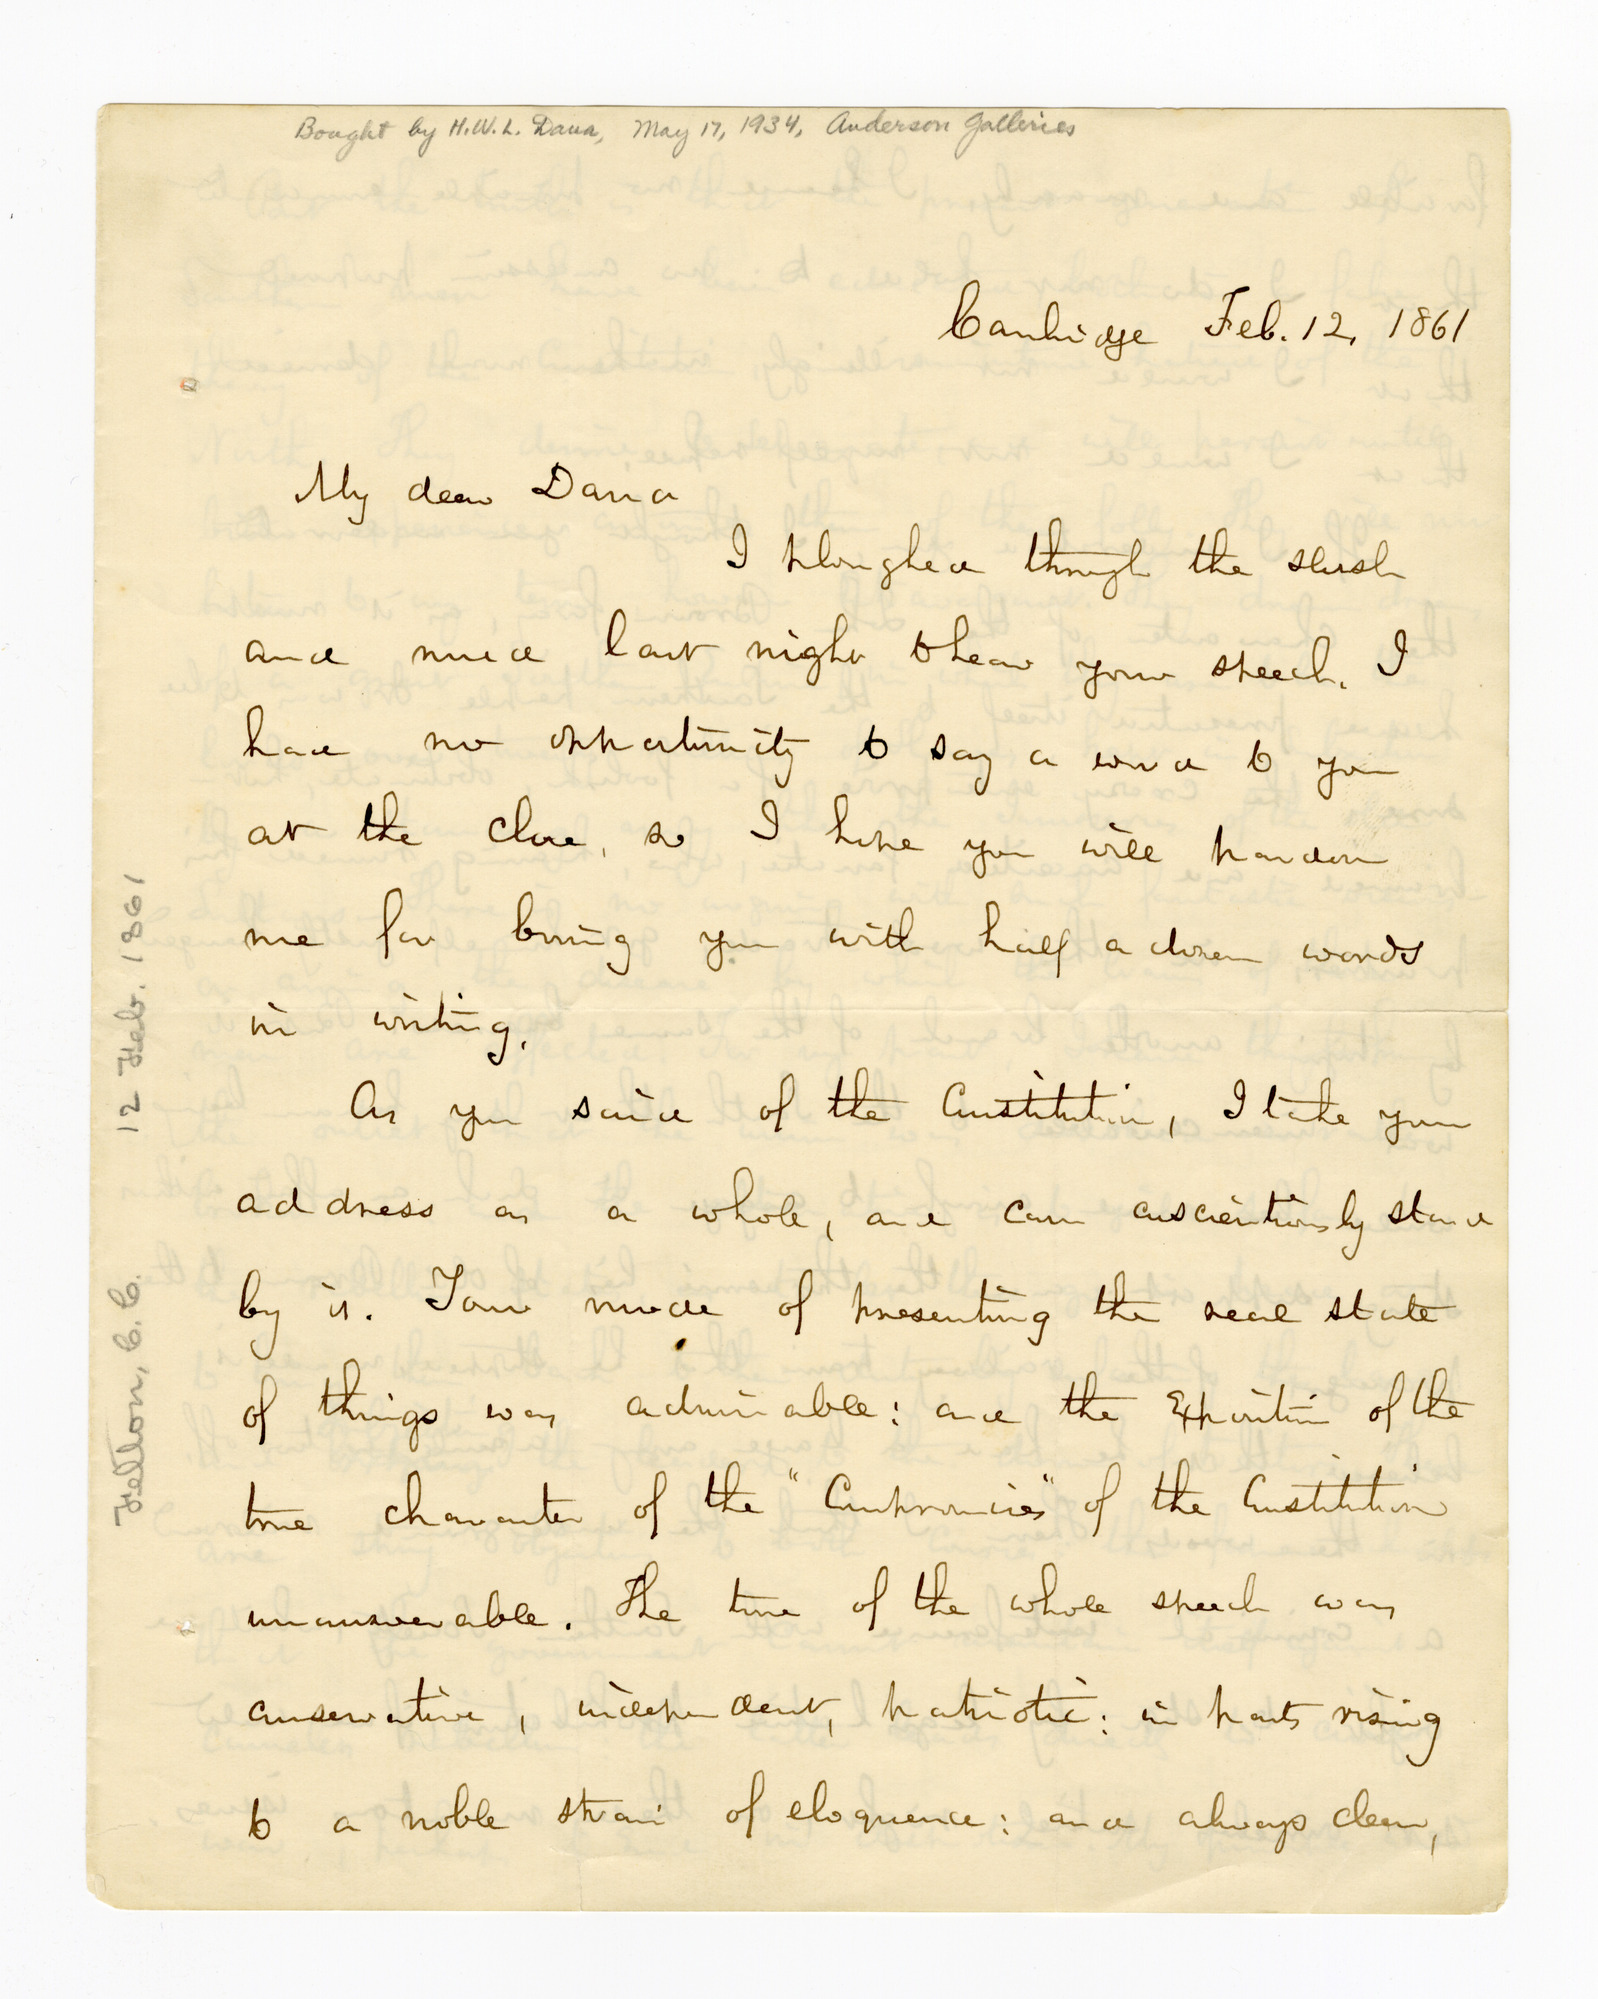 Bought by H.W.L. Dana, May 17, 1934, Anderson Galleries
Cambridge Feb. 12, 1861
My dear Dana
I ploughed through the slush
and mud last night to hear your speech. I
had no opportunity to say a word to you
at the close, so I hope you will pardon
me for boring you with half a dozen words
in writing.
As you said of the Constitution, I take your
address as a whole, and can conscientiously stand
by it. Your mode of presenting the real state
of things was admirable: and the exposition of the
true character of the "Compromises" of the Constitution
unanswerable. The tone of the whole speech was
conservative, independent, patriotic: in parts rising
to a noble strain of eloquence: and always clear,
Felton, C. C. 12 Feb. 1861